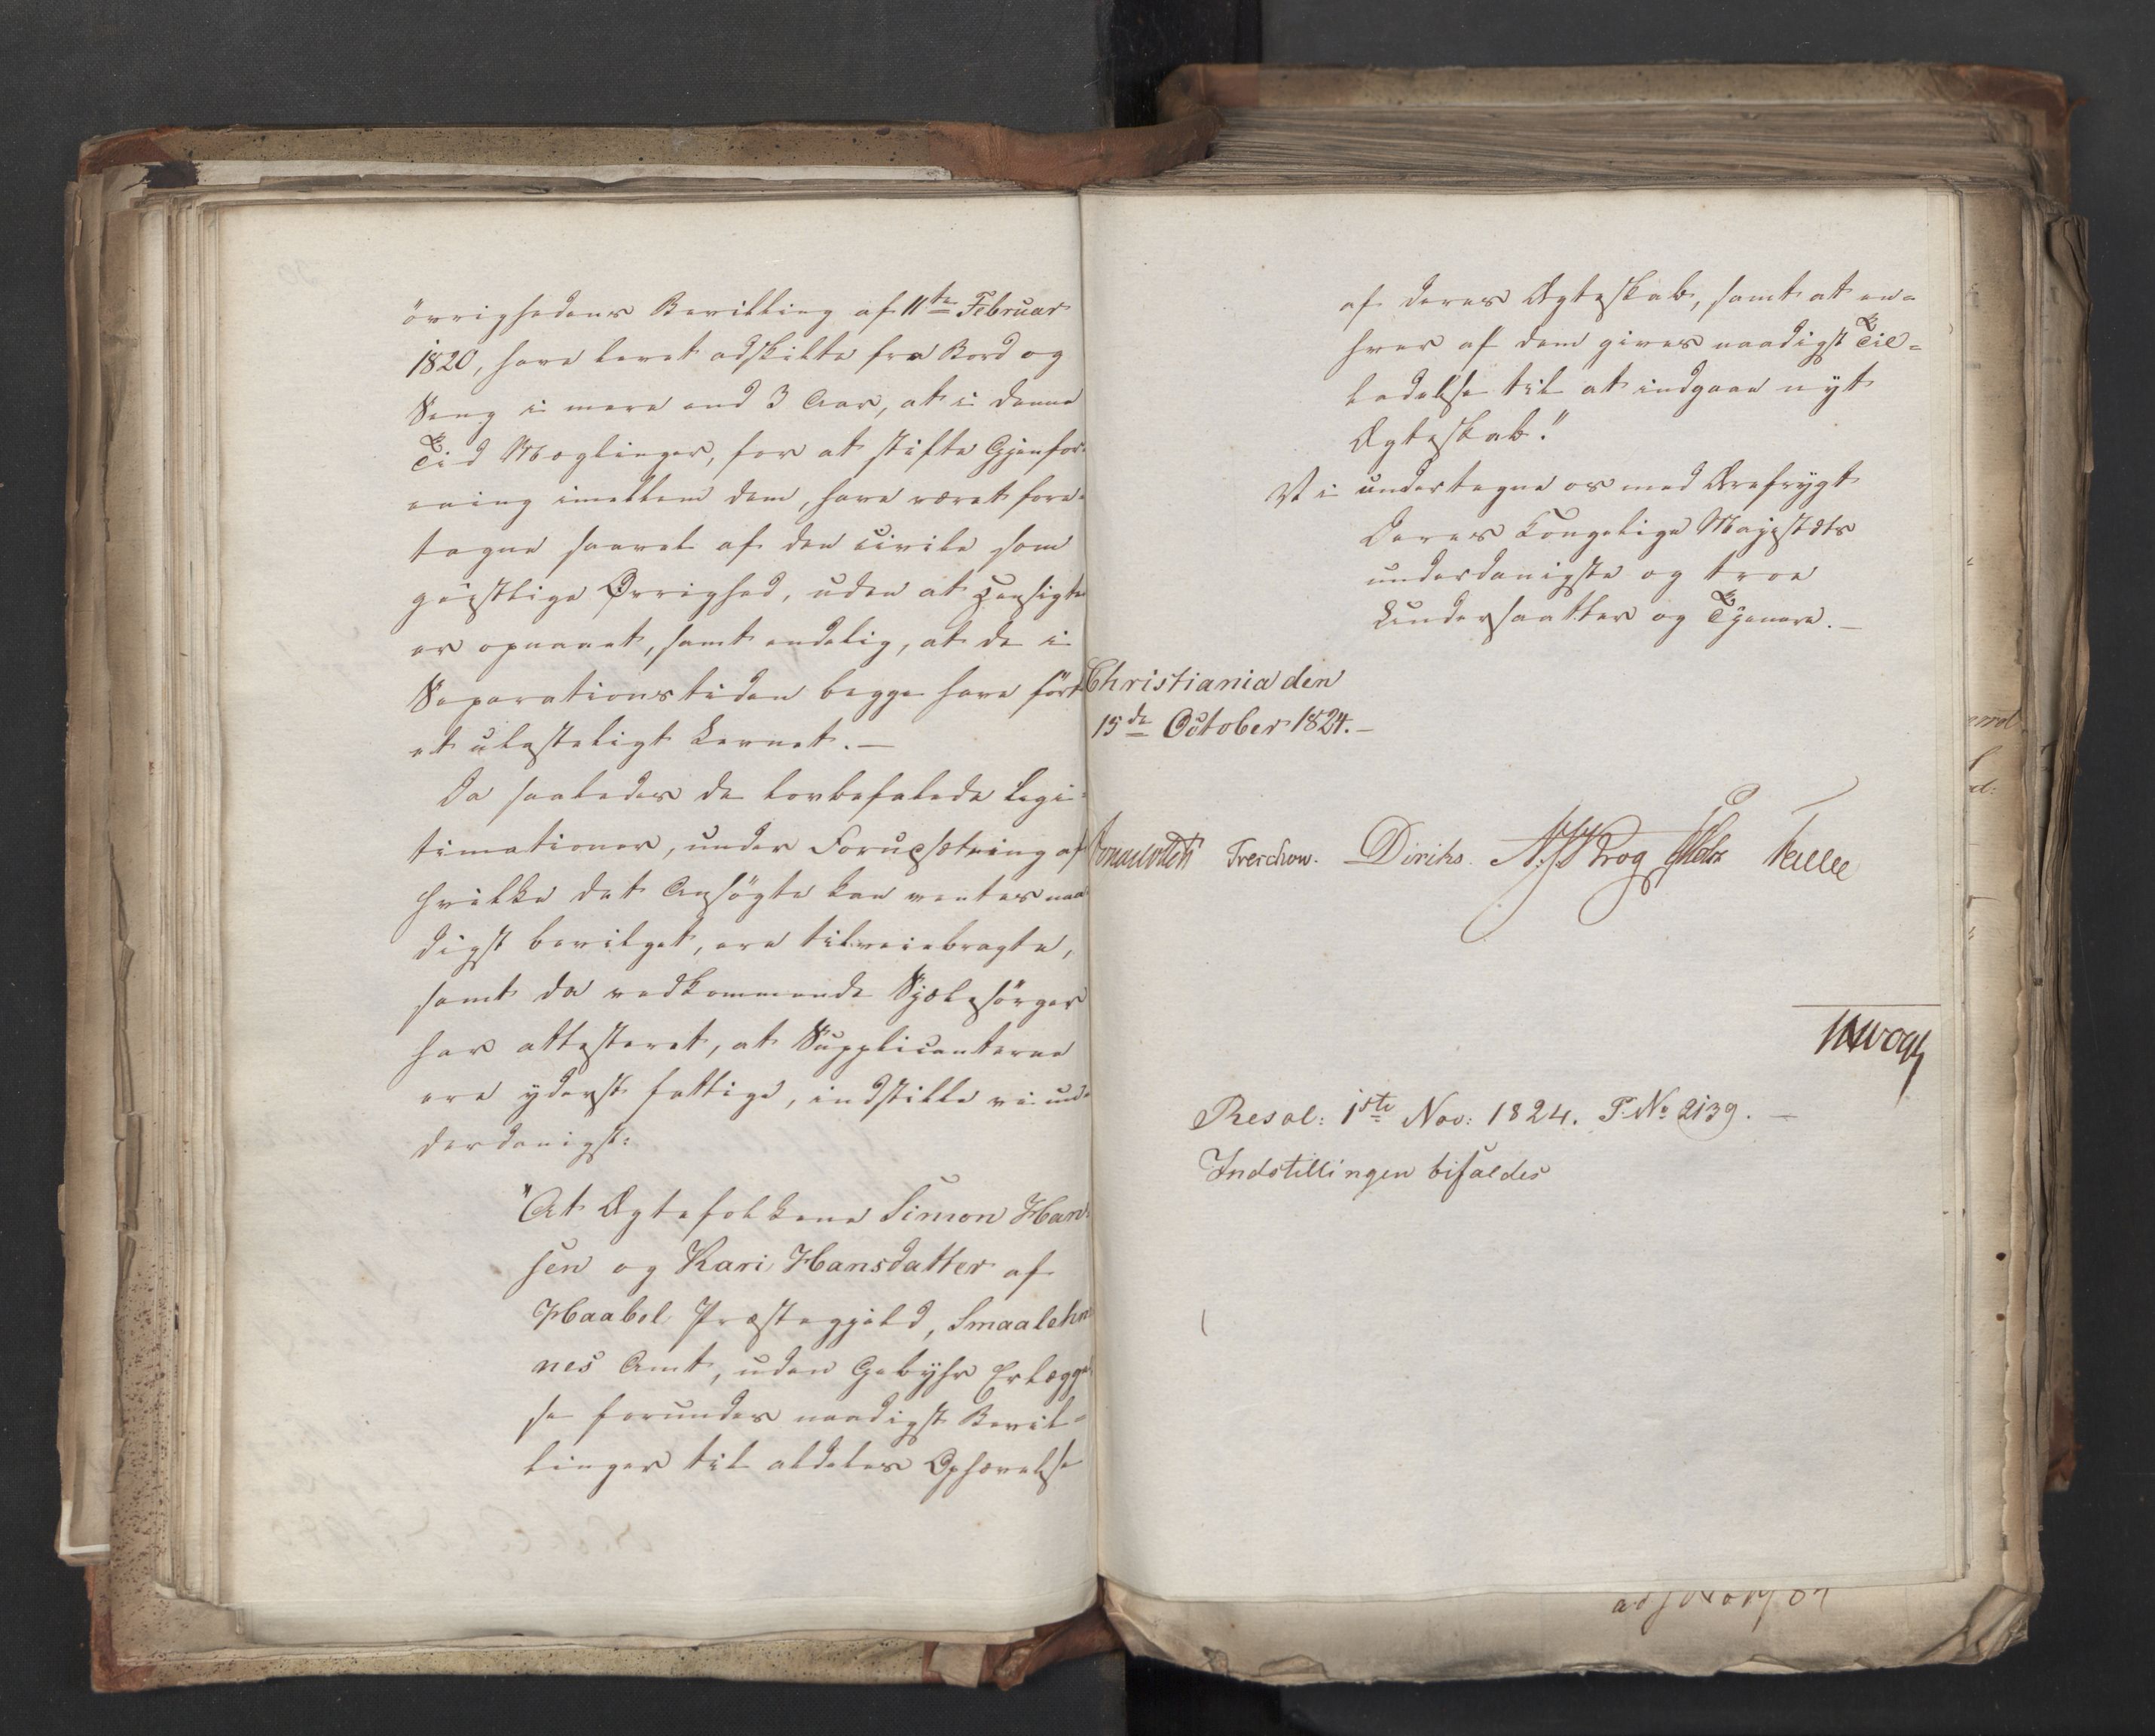 övrighedens Bevilling af 11te Februar
1820, have levet adskilte fra Bord og
Seng i mere end 3 Aar, at i denne
Tid Mæglinger, for at stifte Gjenfor-
ening imellem dem, have været fore-
tagne saavel af den civile som
geistlige Øvrighed, uden at Hensigten
er opnaaet, samt endelig, at de i
Separationstiden begge have fört
et ulasteligt Levnet.—
Da saaledes de lovbefalede Legi-
timationer, under Forudsætning af
hvilke det Ansögte kan ventes naa-
digst bevilget, ere tilveiebragte,
samt da vedkommende Sjælesörger
har attesteret, at Supplicanterne
ere yderst fattige, indstille vi un-
derdanigst:
"At Ægtefolkene Simon Han-
sen og Kari Hansdatter af
Haabøl Præstegjeld, Smaalehn-
nes Amt, uden Gebyhr Erlæggel-
se forundes naadigst Bevil-
linger til aldeles Ophævelse
af deres Ægteskab, samt at en-
hver af dem gives naadigst Til-
ladelse til at indgaae nyt
Ægteskab."
Vi undertegne os med Ærefrygt
Deres Kongelige Majestæts
underdanigste og troe
Undersaatter og Tjenere.—
Christiania den
15de October 1824.—
Sommerhielm Treschow. Diriks. Krog Holst Fasting
JHVogt
Resol: 1ste Nov: 1824. P. No 2139.—
Indstillingen bifaldes